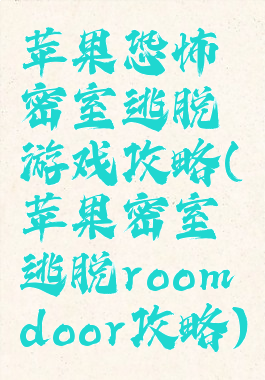 苹果恐怖
密室逃脱
游戏攻略(
苹果密室
逃脱room
door攻略)